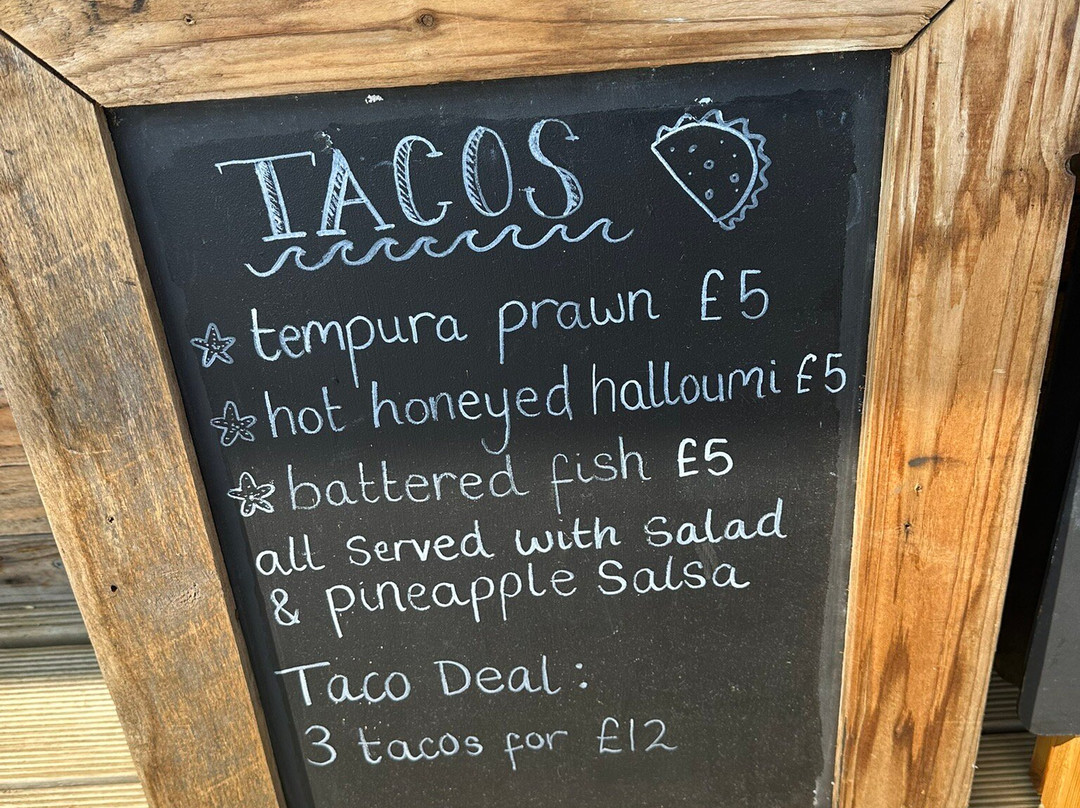 TACOS
tempura prawn £5
hot honeyed halloumi £5
battered fish £5
all Served with Salad
& pineapple Salsa
Taco Deal:
3 tacos for £12